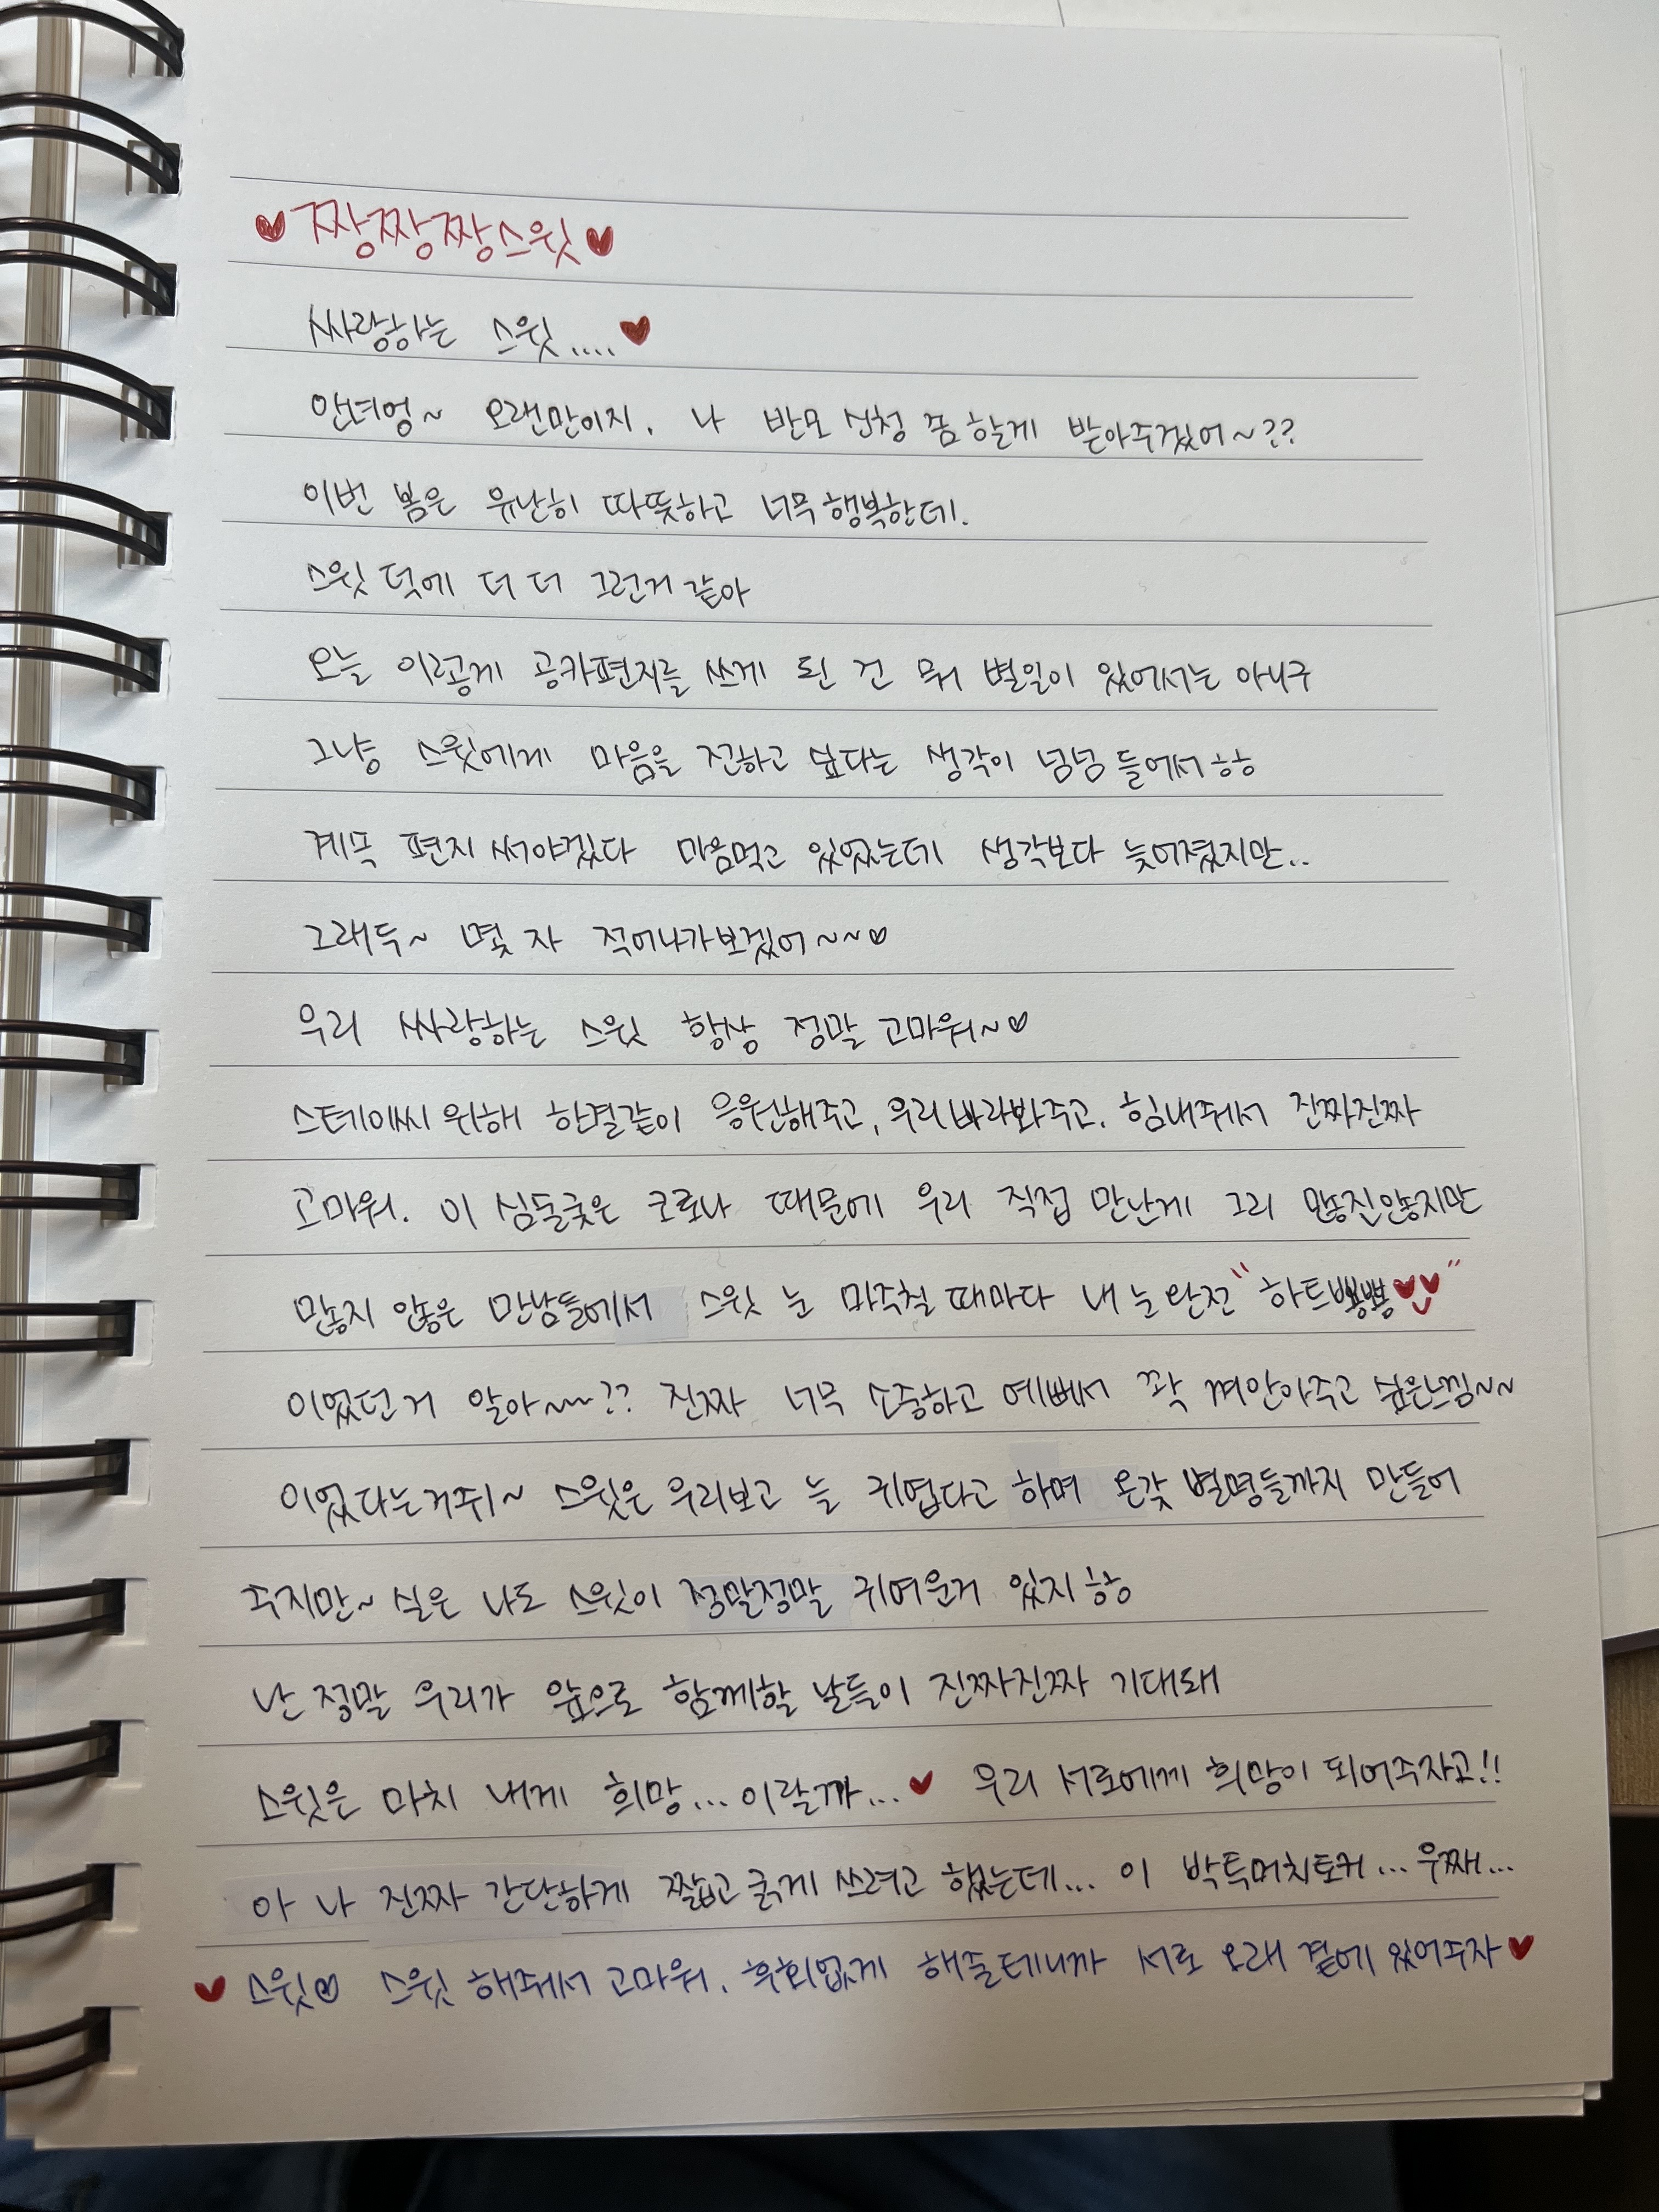 ♥짱짱짱스윗♥
싸랑하는 스윗....♥
안녀엉~ 오랜만이지. 나 반모 신청 좀 할게 받아주겠어~??
이번 봄은 유난히 따뜻하고 너무 행복한데.
스윗 덕에 더 더 그런거 같아
오늘 이렇게 공카편지를 쓰게 된 건 뭐 별일이 있어서는 아니구
그냥 스윗에게 마음을 전하고 싶다는 생각이 넘넘 들어서 ㅎㅎ
계쏙 편지 써야겠다 마음먹고 있었는데 생각보다 늦어졌지만..
그래두~ 몇 자 적어나가보겠어~~♡
우리 싸랑하는 스윗 항상 정말 고마워~♡
스테이씨 위해 한결같이 응원해주고, 우리 바라봐주고. 힘내줘서 진짜진짜
고마워. 이 심돌궂은 코로나 때문에 우리 직접 만난게 그리 많진않지만
많지 않은 만남들에서 스윗 눈 마주칠 때마다 내 눈 완전 "하트뿅뿅♥♥"
이었던거 알아~~~?? 진짜 너무 소중하고 예뻐서 꽉 껴안아주고 싶은느낌~~
이었다는거쥐~ 스윗은 우리보고 늘 귀엽다고 하며 온갖 별명들까지 만들어
주지만~ 실은 나도 스윗이 정말정말 귀여운거 있지 ㅎㅎ
난 정말 우리가 앞으로 함께할 날들이 진짜진짜 기대돼
스윗은 마치 내게 희망...이랄까...♥ 우리 서로에게 희망이 되어주자고!!
아 나 진짜 간단하게 짧고 굵게 쓰려고 했는데... 이 박투머치토커... 우째...
♥ 스윗♡ 스윗 해줘서 고마워. 후회없게 해줄테니까 서로 오래 곁에 있어주자♥